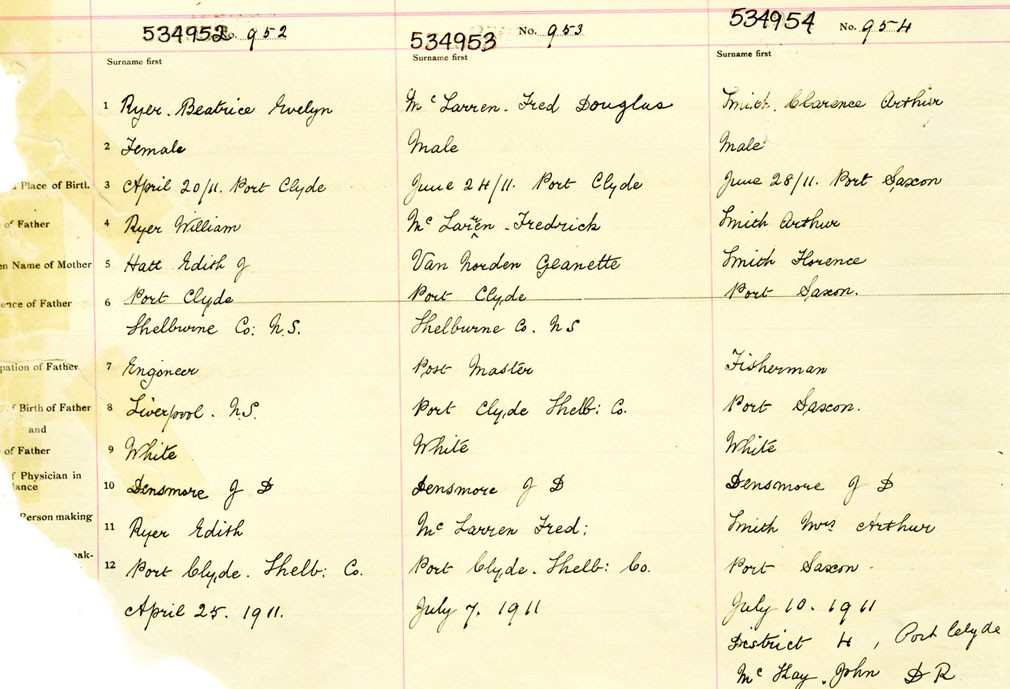 534952 No. 952
534953 No. 953
534954 No. 954
Surname first
Surname first
Surname first
1 Ryer. Beatrice Evelyn
Mc Larren. Fred Douglas
Smith. Clarence Arthur
2 Female
Male
Male
Place of Birth. 3 April 20/11. Port Clyde
June 24/11. Port Clyde
June 28/11. Port Saxon
of Father 4 Ryer William
Mc Laren - Fredrick
Smith Arthur
en Name of Mother 5 Hatt Edith J
Van Norden Geanette
Smith Florence
ence of Father 6 Port Clyde
Port Clyde
Port Saxon.
Shelburne Co: N.S.
Shelburne Co. N S
pation of Father 7 Engoneer
Post Master
Fisherman
of Birth of Father 8 Liverpool. N.S.
Port Clyde Shelb: Co.
Port Saxon.
and
of Father 9 White
White
White
f Physician in
lance 10 Densmore J D
Densmore J D
Densmore J D
Person making
11 Ryer Edith
Mc Larren Fred:
Smith Mrs Arthur
mak-
12 Port Clyde. Shelb: Co.
Port Clyde. Shelb: Co.
Port Saxon.
April 25. 1911.
July 7. 1911
July 10. 1911
District 4, Port Clyde
Mc Kay. John D R